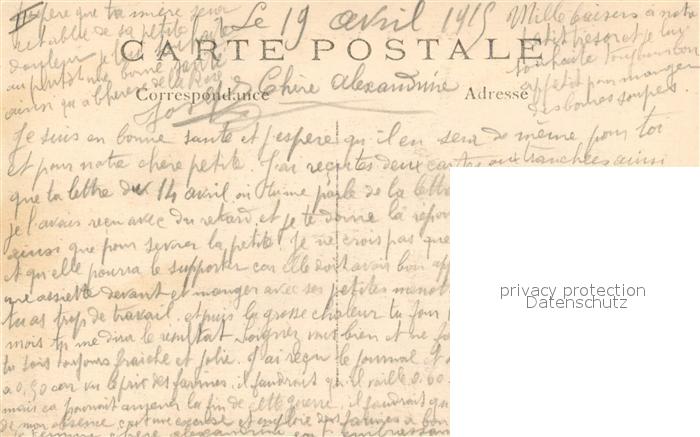 Le 19 avril 1915
II
espère que ta mère sera
rétablie de sa petite
douleur je lui souhaite
au printemps bonne santé
ainsi qu'à
Mille baisers à notre
petit trésor et je lui
souhaite toujours bon
appétit pour manger
ses bonnes soupes.
CARTE POSTALE
Correspondance
Adresse
Chère Alexandrine
Je suis en bonne santé et j'espère qu'il en sera de même pour toi
et pour notre chère petite. J'ai reçu tes deux cartes aux tranchées ainsi
que ta lettre du 14 avril où tu me parle de la lettre
je l'avais reçu avec du retard, et je te donne la répon
ainsi que pour sevrer la petite. Je ne crois pas que
et qu'elle pourra le supporter car elle doit avoir bon app
une assiette devant et manger avec ses petites menot
tu as trop de travail, et puis la grosse chaleur tu
mois tu me diras le résultat. Soignez vous bien et ne
tu sois toujours fraîche et jolie. J'ai reçu le journal et
a 0,50 car vu le prix des farines, il faudrait qu'il vaille 0.60
mais ça pourrait amener la fin de cette guerre, il faudrait que
de mon absence
privacy protection
Datenschutz